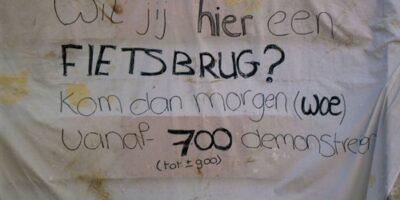 Wil jij hier een
FIETSBRUG?
Kom dan morgen (woe)
vanaf 700 demonstreren
(tot ± 900)